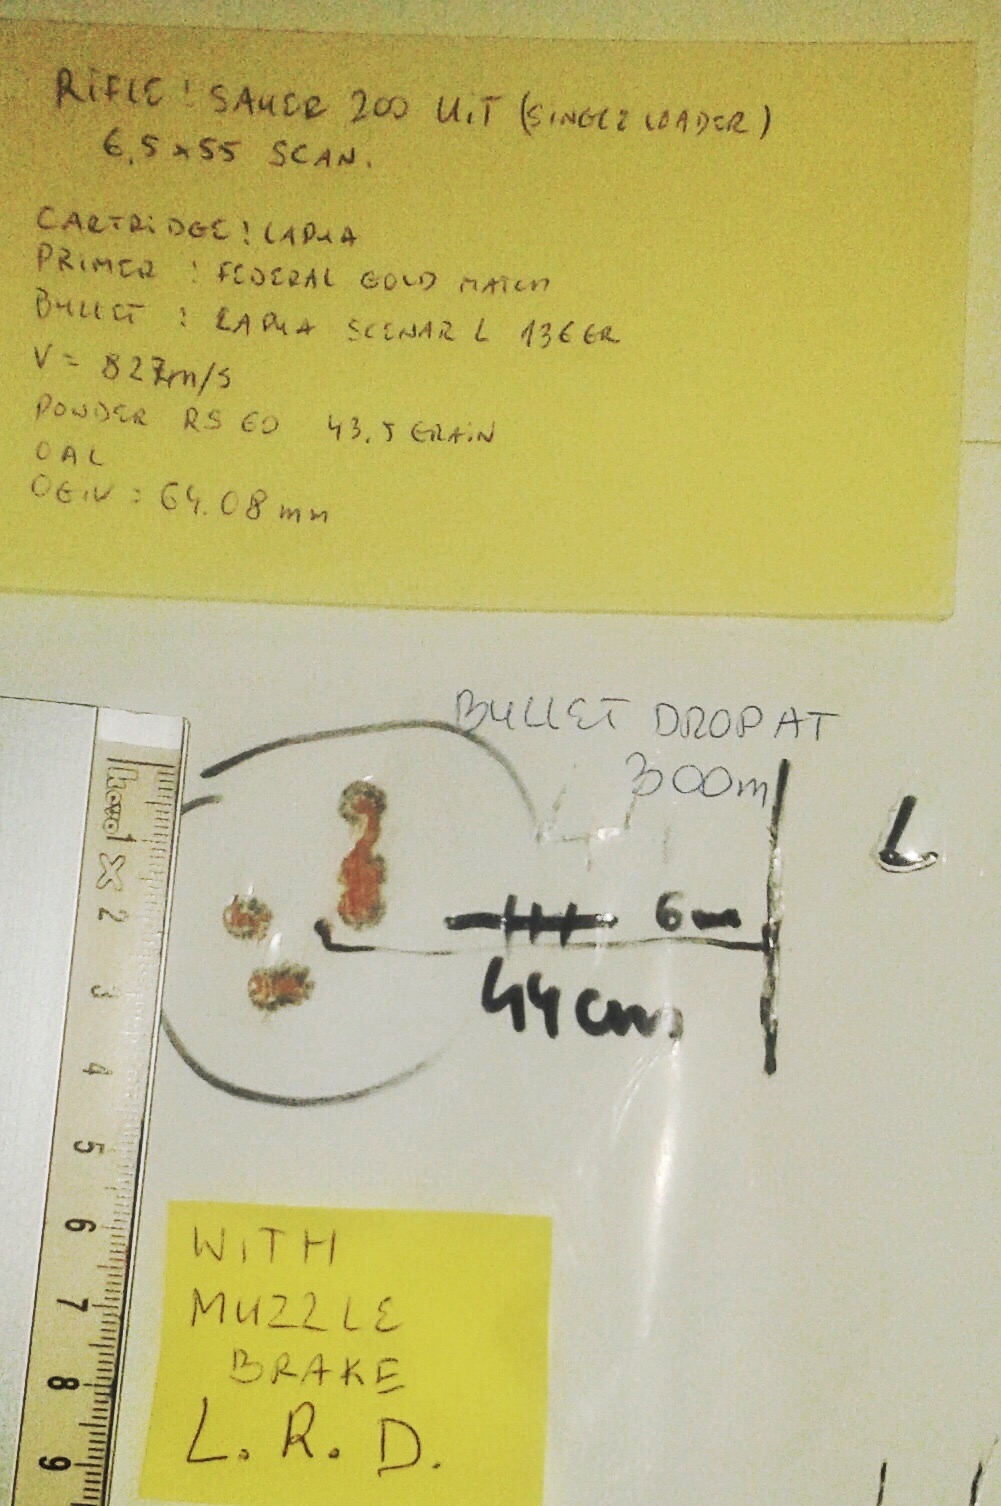 RiFLE! SAUER 200 UiT (SINGLE LOADER)
6,5x55 SCAN.
CARTRiDGE! LAPUA
PRIMER : FEDERAL GOLD MATCH
BULLET : LAPUA SCENAR L 136 GR
V= 827m/s
POWDER RS 60 43,5 GRAiN
OAL
OGiV = 64.08mm
BULLET DROP AT
300m
L
6
44cm
2
3
4
5
6
7
8
9
WiTH
MUZZLE
BRAKE
L.R.D.